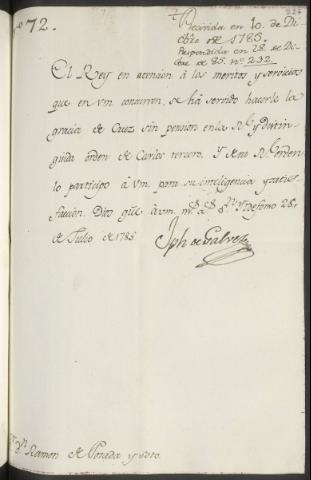 nº 72.
Recivida en 10. de Di-
cbre de 1785.
Respondida en 28. de Di-
cbre de 85. nº 232
El Rey en atencion á los meritos y servicios
que en vm. concurren, se há servido hacerle la
gracia de Cruz sin pension en la Rl. y Distin-
guida orden de Carlos tercero. Y de su Rl. orden
lo participo á Vm. para su inteligencia y satis-
faccion. Dios gue. á vm. ms. as. Sn. Yldefonso 28.
de Julio de 1785.
Jph de Galvez
Sr. Dn. Ramon de Posada y Soto.